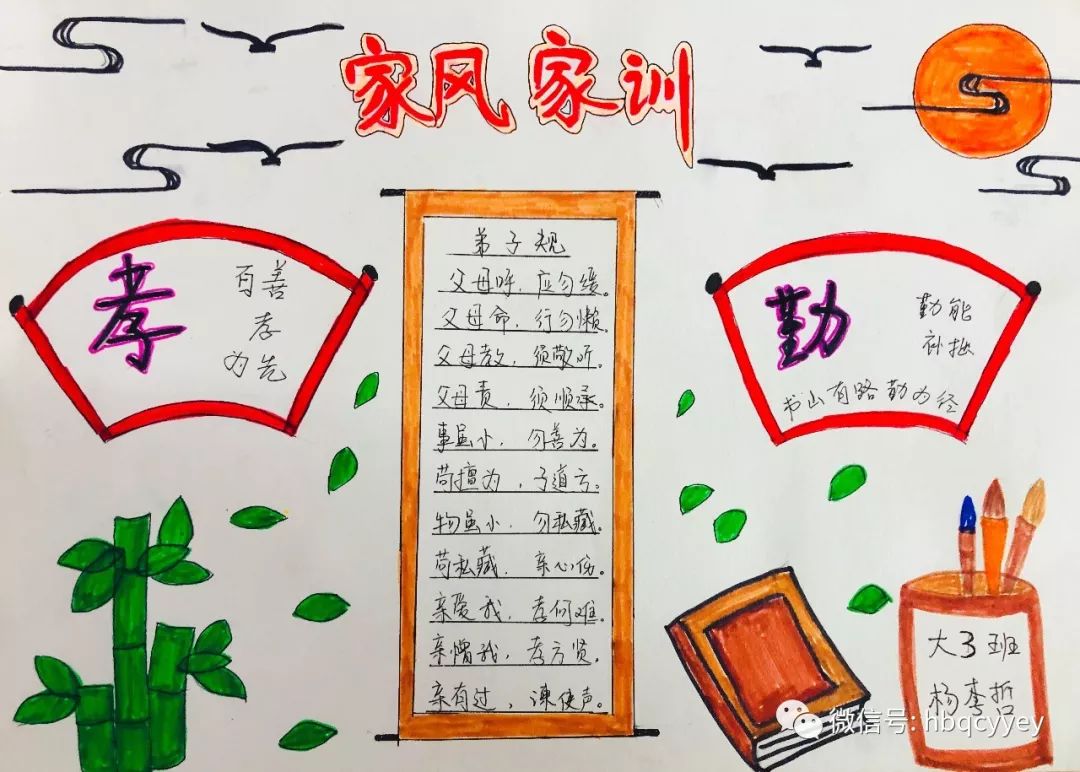 家风家训
孝
百善
孝
为先
弟子规
父母呼，应勿缓。
父母命，行勿懒。
父母教，须敬听。
父母责，须顺承。
事虽小，勿善为。
苟擅为，子道亏。
物虽小，勿私藏。
苟私藏，亲心伤。
亲爱我，孝何难。
亲憎我，孝方贤。
亲有过，谏使声。
勤
勤能
补拙
书山有路勤为经
大3班
杨李哲
微信号: hbqcyyey